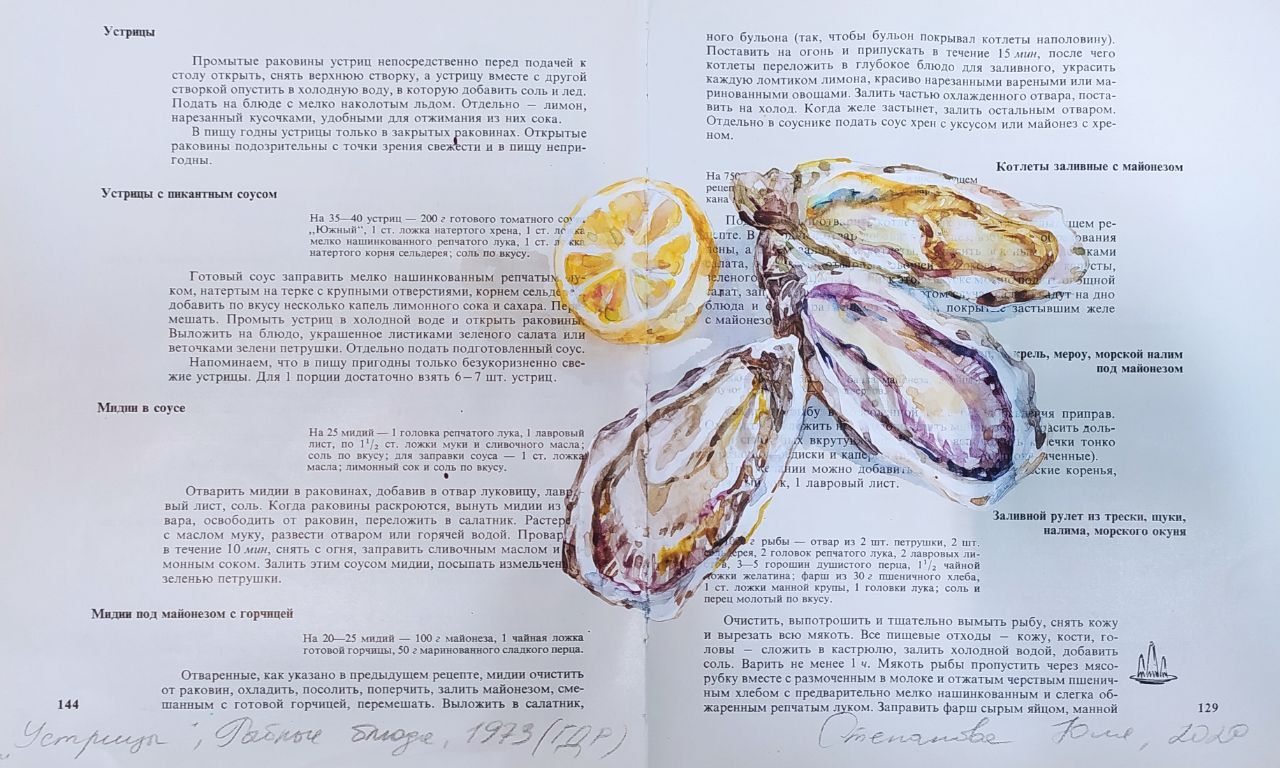 Устрицы
Промытые раковины устриц непосредственно перед подачей к
столу открыть, снять верхнюю створку, а устрицу вместе с другой
створкой опустить в холодную воду, в которую добавить соль и лед.
Подать на блюде с мелко наколотым льдом. Отдельно — лимон,
нарезанный кусочками, удобными для отжимания из них сока.
В пищу годны устрицы только в закрытых раковинах. Открытые
раковины подозрительны с точки зрения свежести и в пищу непри-
годны.
Устрицы с пикантным соусом
На 35—40 устриц — 200 г готового томатного
„Южный“, 1 ст. ложка натертого хрена, 1 ст.
мелко нашинкованного репчатого лука, 1 ст.
натертого корня сельдерея; соль по вкусу.
Готовый соус заправить мелко нашинкованным репчатым
ком, натертым на терке с крупными отверстиями, корнем
добавить по вкусу несколько капель лимонного сока и сахара.
мешать. Промыть устриц в холодной воде и открыть раковины.
Выложить на блюдо, украшенное листиками зеленого салата или
веточками зелени петрушки. Отдельно подать подготовленный соус.
Напоминаем, что в пищу пригодны только безукоризненно све-
жие устрицы. Для 1 порции достаточно взять 6—7 шт. устриц.
Мидии в соусе
На 25 мидий — 1 головка репчатого лука, 1 лавровый
лист, по 1¹/₂ ст. ложки муки и сливочного масла;
соль по вкусу; для заправки соуса — 1 ст. ложка
масла; лимонный сок и соль по вкусу.
Отварить мидии в раковинах, добавив в отвар луковицу,
вый лист, соль. Когда раковины раскроются, вынуть мидии из
вара, освободить от раковин, переложить в салатник.
с маслом муку, развести отваром или горячей водой.
в течение 10 мин, снять с огня, заправить сливочным маслом и
монным соком. Залить этим соусом мидии, посыпать
зеленью петрушки.
Мидии под майонезом с горчицей
На 20—25 мидий — 100 г майонеза, 1 чайная ложка
готовой горчицы, 50 г маринованного сладкого перца.
Отваренные, как указано в предыдущем рецепте, мидии очистить
от раковин, охладить, посолить, поперчить, залить майонезом, сме-
шанным с готовой горчицей, перемешать. Выложить в салатник,
144
„Устрицы“, Рыбные блюда, 1973 (ГДР)
ного бульона (так, чтобы бульон покрывал котлеты наполовину).
Поставить на огонь и припускать в течение 15 мин, после чего
котлеты переложить в глубокое блюдо для заливного, украсить
каждую ломтиком лимона, красиво нарезанными вареными или ма-
ринованными овощами. Залить частью охлажденного отвара, поста-
вить на холод. Когда желе застынет, залить остальным отваром.
Отдельно в соуснике подать соус хрен с уксусом или майонез с хре-
ном.
Котлеты заливные с майонезом
На 750
щем ре-
В
а
на дно
блюда и застывшим желе
с майонезом
мероу, морской налим
под майонезом
приправ.
тонко
и
можно коренья,
1 лавровый лист.
Заливной рулет из трески, щуки,
налима, морского окуня
г рыбы — отвар из 2 шт. петрушки, 2 шт.
2 головок репчатого лука, 2 лавровых ли-
3—5 горошин душистого перца, 1¹/₂ чайной
ложки желатина; фарш из 30 г пшеничного хлеба,
1 ст. ложки манной крупы, 1 головки лука; соль и
перец молотый по вкусу.
Очистить, выпотрошить и тщательно вымыть рыбу, снять кожу
и вырезать всю мякоть. Все пищевые отходы — кожу, кости, го-
ловы — сложить в кастрюлю, залить холодной водой, добавить
соль. Варить не менее 1 ч. Мякоть рыбы пропустить через мясо-
рубку вместе с размоченным в молоке и отжатым черствым пшенич-
ным хлебом с предварительно мелко нашинкованным и слегка об-
жаренным репчатым луком. Заправить фарш сырым яйцом, манной
129
Степанова Юля, 2020